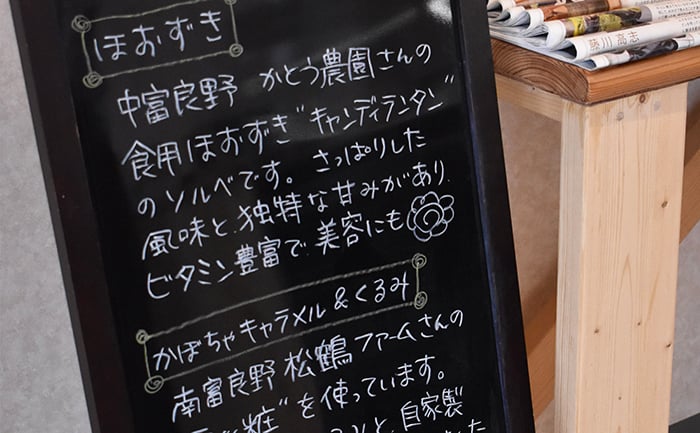 ほおずき
中富良野 かとう農園さんの
食用ほおずき"キャンディランタン"
のソルベです。さっぱりした
風味と、独特な甘みがあり、
ビタミン豊富で、美容にも
かぼちゃキャラメル&くるみ
南富良野 松鶴ファームさんの
粧"を使っています。
と、自家製
した
藤川高志